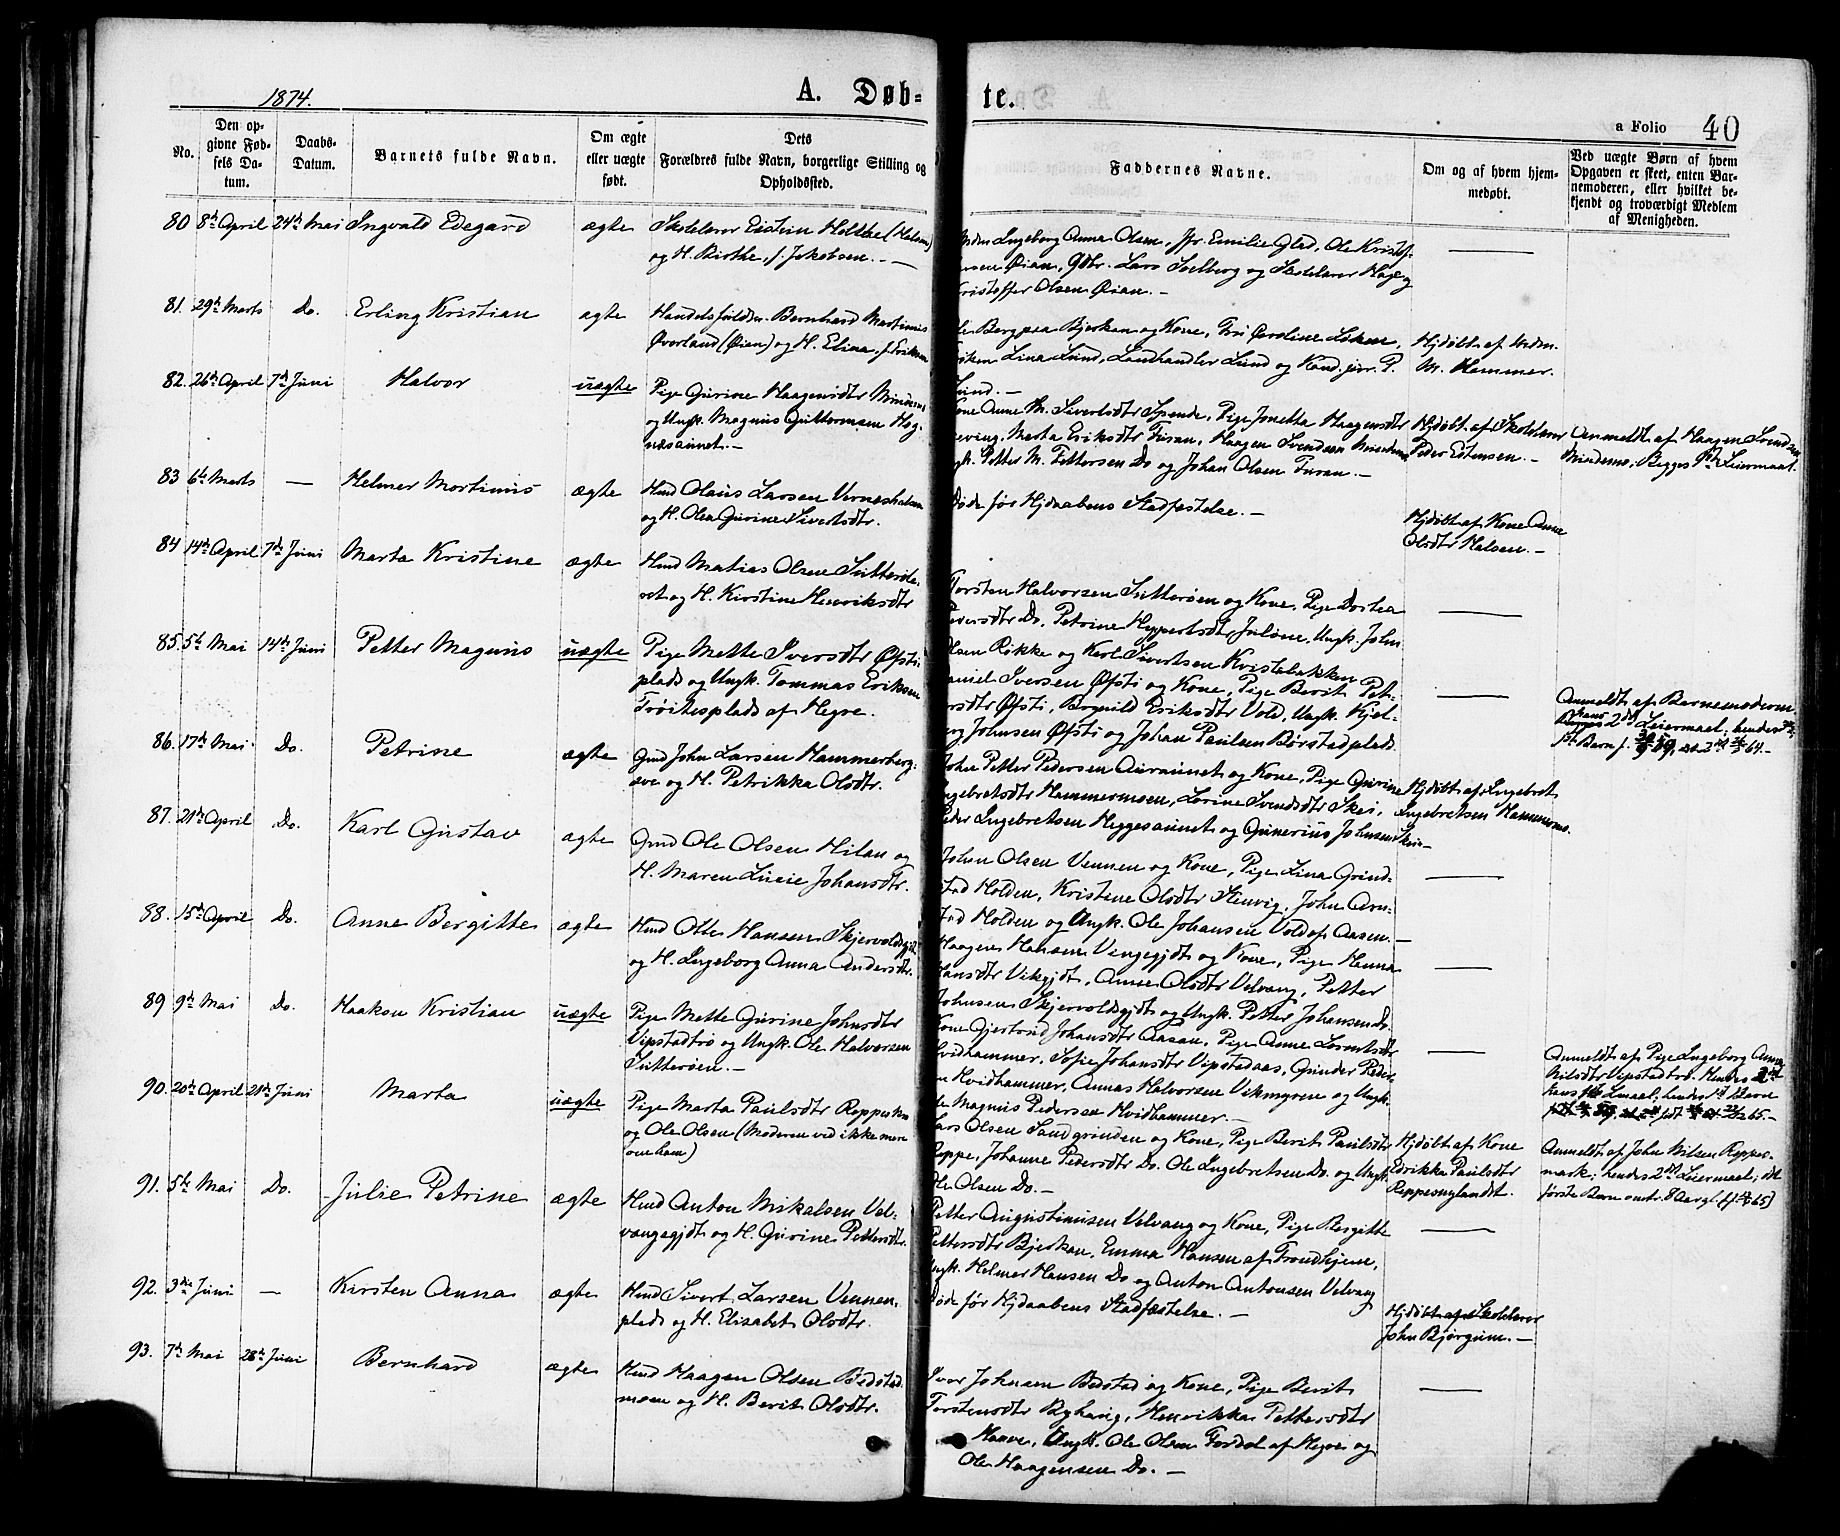 1874.
A. Døb-
te.
a Folio 40
No.
Den op-
givne Fød-
sels Da-
tum.
Daabs-
Datum.
Barnets fulde Navn.
Om ægte
eller uægte
født.
Dets
Forældres fulde Navn, borgerlige Stilling og
Opholdssted.
Faddernes Navne.
Om og af hvem hjem-
medøbt.
Ved uægte Børn af hvem
Opgaven er skeet, enten Bar-
nemoderen, eller hvilket be-
kjendt og troværdigt Medlem
af Menigheden.
80 8de April 24de Mai Ingvald Edegard ægte Skolelærer Eistein (Halsen)
og H. Birthe, f. Jakobsen. —
Ingeborg Anna Olsen, Jfr. Emilie Glad, Ole Kristof-
fersen Øian, Gbr. Lars Solberg og Skolelærer Hage og
Kristoffer Olsen Øian. —
81. 29de Marts Do. Erling Kristian ægte Bernhard Martinus
Øverland (Øien) og H. Elina, f. Eriksen
Berg paa Bjerkan og Kone, Løken,
Lina Lund, Landhandler Lund og Kand. jur. P.
Lund. —
Hjdøbt af
M. Hammer.
82. 26de April 7de Juni Halvor uægte Pige Gurine Haagensdtr Mindemo
og Ungk. Magnus Guttormsen Heg-
næsaunet. —
Kone Anne M. Sivertsdtr Spende, Pige Jonetta Haagensdtr
Marta Eriksdtr Furan, Haagen Svendsen
Ungk. Petter M. Pettersen Do og Johan Olsen Furan. —
Hjdøbt af Skolelærer
Peder Estensen. —
Anmeldt af Haagen Svendsen
Mindemo, Begges 1ste Leiermaal.
83 6te Marts — Helmer Martinus ægte Hmd Olaus Larsen Vernæshalsen
og H. Olea Gurine Sivertsdtr.
Døde før Hjdaabens Stadfæstelse. —
Hjdøbt af Kone Anne
Olsdtr Halsen. —
84 14de April 7de Juni Marta Kristine ægte Hmd Matias Olsen
og H. Kirstine Henriksdtr
Torsten Halvorsen Sutterøen og Kone, Pige Dortea
Do, Petrine Juløne, Ungk. John
Olsen Røkke og Karl Sivertsen Kvistebakken
85. 5te Mai 14de Juni Petter Magnus uægte Pige Mette Iversdtr Øfsti-
plads og Ungk. Tommas Eriksen
Trøitesplads af Hegre.
Daniel Iversen Øfsti og Kone, Pige Berit Pet-
ersdtr Øfsti, Eriksdtr Vold, Ungk. Kjel-
Johnsen Øfsti og Johan Paulsen Børstadplads.
Anmeldt af Barnemoderen
hans 2det Leiermaal, hendes
86. 17de Mai Do. Petrine ægte Gmd John Larsen Hammerberg-
og H. Petrikka Olsdtr.
John Petter Pedersen Auraunet og Kone, Pige Gurine
Ingebretsdtr Hammermoen, Lovine Svendsdtr Skei,
Peder Ingebretsen Heggesaunet og Gunerius Johnsen Skei—
Hjdøbt af Ingebret
Ingebretsen Hammermo.
87. 21de April Do. Karl Gustav ægte Gmd Ole Olsen Hilan og
H. Maren Lucie Johansdtr.
Johan Olsen Vennen og Kone, Pige Lina Grind-
stad Holden, Kristine Olsdtr Stenvig, John Arn-
stad Holden og Ungk. Ole Johansen Vold af Aasen. —
88. 15de April Do. Anne Bergitte ægte Hmd Otte Hansen Skjervoldsgjt
og H. Ingeborg Anna Andersdtr.
Haagen Hansen Vingegjdt og Kone, Pige Hanna
Hansdtr Vikgjdt, Anne Olsdtr Velvang, Petter
Johnsen Skjervoldsgjdt og Ungk. Petter Johansen Do.
89 9de Mai Do. Haakon Kristian uægte Pige Mette Gurine Johnsdtr
Vipstadtrø og Ungk. Ole Halvorsen
Sutterøen. —
Kone Gjertrud Johansdtr Aasan, Pige Anne Lorntsdtr
Hvidhammer, Sofie Johansdtr Vipstadaas, Grinder Peder-
sen Hvidhammer, Annas Halvorsen Vikmyren og Ungk.
Ole Magnus Pedersen Hvidhammer. —
Anmeldt af Pige Ingeborg Anna
Nilsdtr Vipstadtrø. Hendes 2det
hans 1ste hendes 1ste Barn
90. 20de April 21de Juni Marta uægte Pige Marta Paulsdtr Reppesn
og Ole Olsen (Moderen ved ikke mere
om ham)
Lars Olsen Sandgrinden og Kone, Pige Berit Paulsdtr
Reppe, Johanne Pedersdtr Do. Ole Ingebretsen Do. og Ungk.
Ole Olsen Do. —
Hjdøbt af Kone
Paulsdtr
Reppesnylandet.
Anmeldt af John Nilsen Reppes-
mark; hendes 2det Leiermaal; det
første Barn omtr. 8 Aar gl.
91. 5te Mai Do. Julie Petrine ægte Hmd Anton Mikalsen Vel-
vangsgjdt og H. Gurine Pettersdtr.
Petter Augustinusen Velvang og Kone, Pige Bergitte
Pettersdtr Bjerkan, Emma Hansen af Trondhjem,
Ungk. Helmer Hansen Do og Anton Antonsen Velvang
92. 3die Juni — Kirsten Anna ægte Hmd Sivert Larsen Vennen-
plads og H. Elisabet Olsdtr.
Døde før Hjdaabens Stadfæstelse. —
Hjdøbt af Skolelærer
John Bjørgum. —
93. 7de Mai 28de Juni Bernhard ægte Hmd Haagen Olsen Bedstad-
moen og H. Berit Olsdtr.
Ivar Johnsen Bedstad og Kone, Pige Berit
Torstensdtr Byhaug, Henrikka Pettersdtr
Ungk. Ole Olsen Fordal af Hegre og
Ole Haagensen Do. —